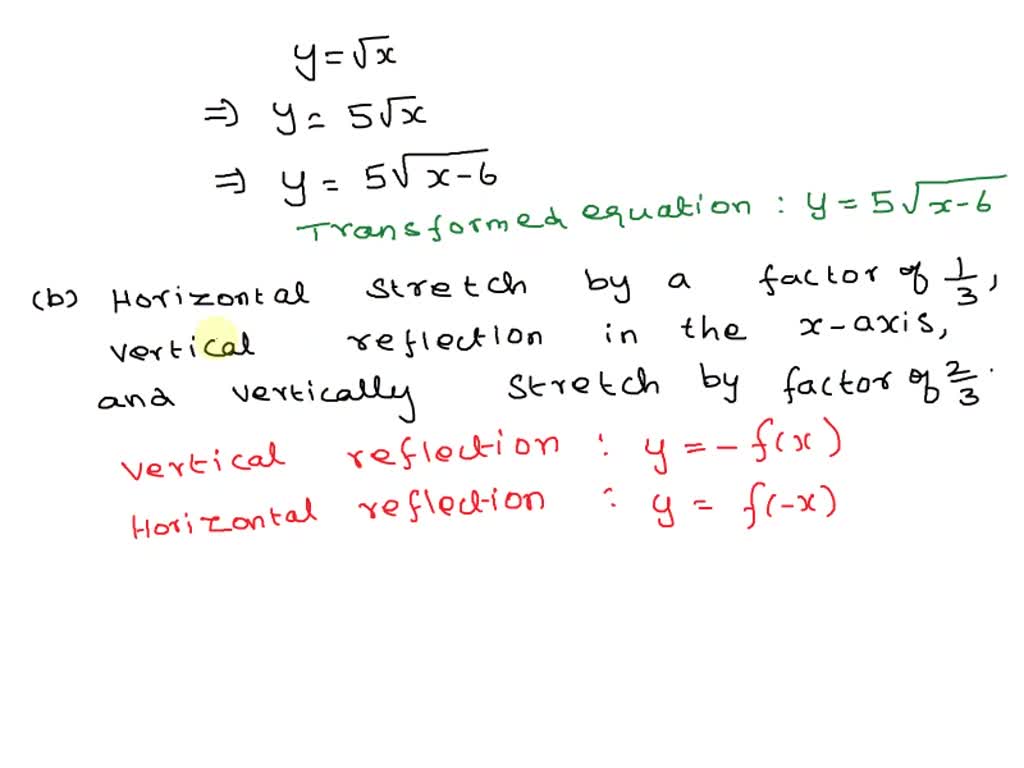 y = √x
⇒ y = 5√x
⇒ y = 5√x-6
Transformed equation : y = 5√x-6
(b) Horizontal stretch by a factor of 1/3,
vertical reflection in the x-axis,
and vertically stretch by factor of 2/3.
vertical reflection : y = - f(x)
Horizontal reflection : y = f(-x)